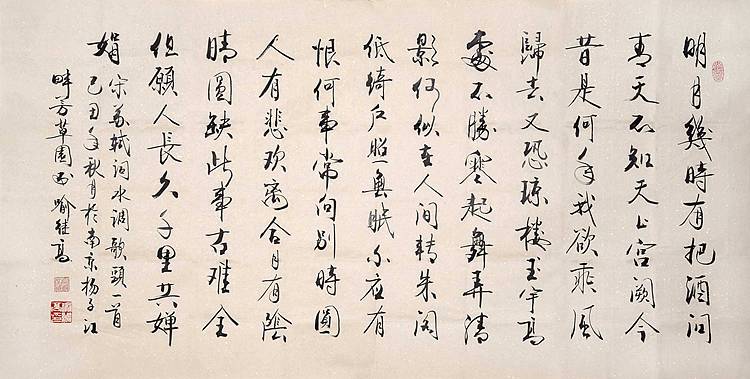 明月幾時有把酒问
青天不知天上宫阙今
昔是何年我欲乘風
歸去又恐瓊楼玉宇高
處不勝寒起舞弄清
影何似在人间轉朱阁
低绮户照無眠不应有
恨何事常向别時圓
人有悲欢離合月有陰
晴圓缺此事古难全
但願人長久千里共婵
娟
宋苏轼词水调歌頭一首
己丑年秋月於南京扬子江
畔芳草園 喻继高